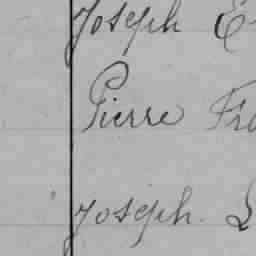 Joseph E
Pierre Fra
Joseph. L